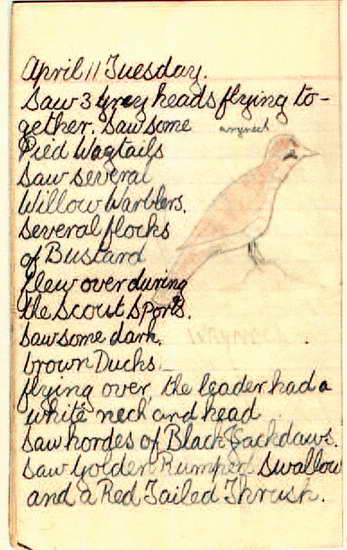 April 11 Tuesday.
Saw 3 grey heads flying to-
gether. Saw some
wryneck
Pied Wagtails
Saw several
Willow Warblers.
Several flocks
of Bustard
flew over during
the Scout Sports.
Saw some dark
brown Ducks
flying over, the leader had a
white neck and head
Saw hordes of Black Jackdaws.
Saw Golden Rumped Swallow
and a Red Tailed Thrush.